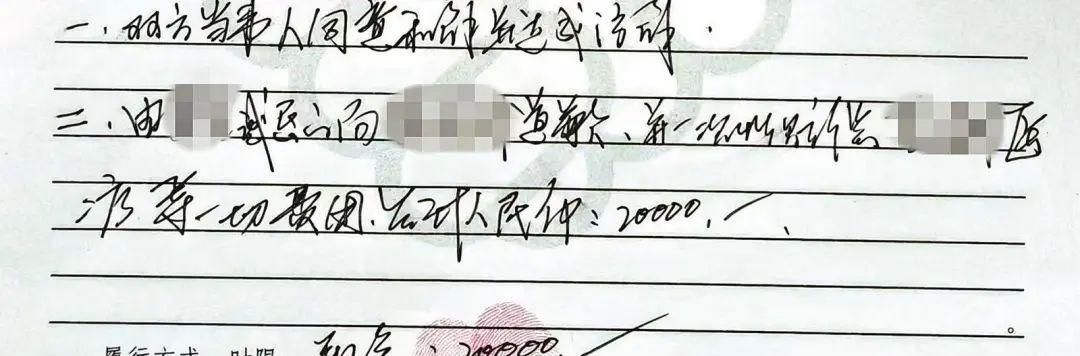 一.双方当事人同意和解并达成谅解.
二.由 诚恳之向 道歉、并一次性赔偿 医
疗等一切费用.合计人民币:20000.
。
履行方式、时限 现金:20000